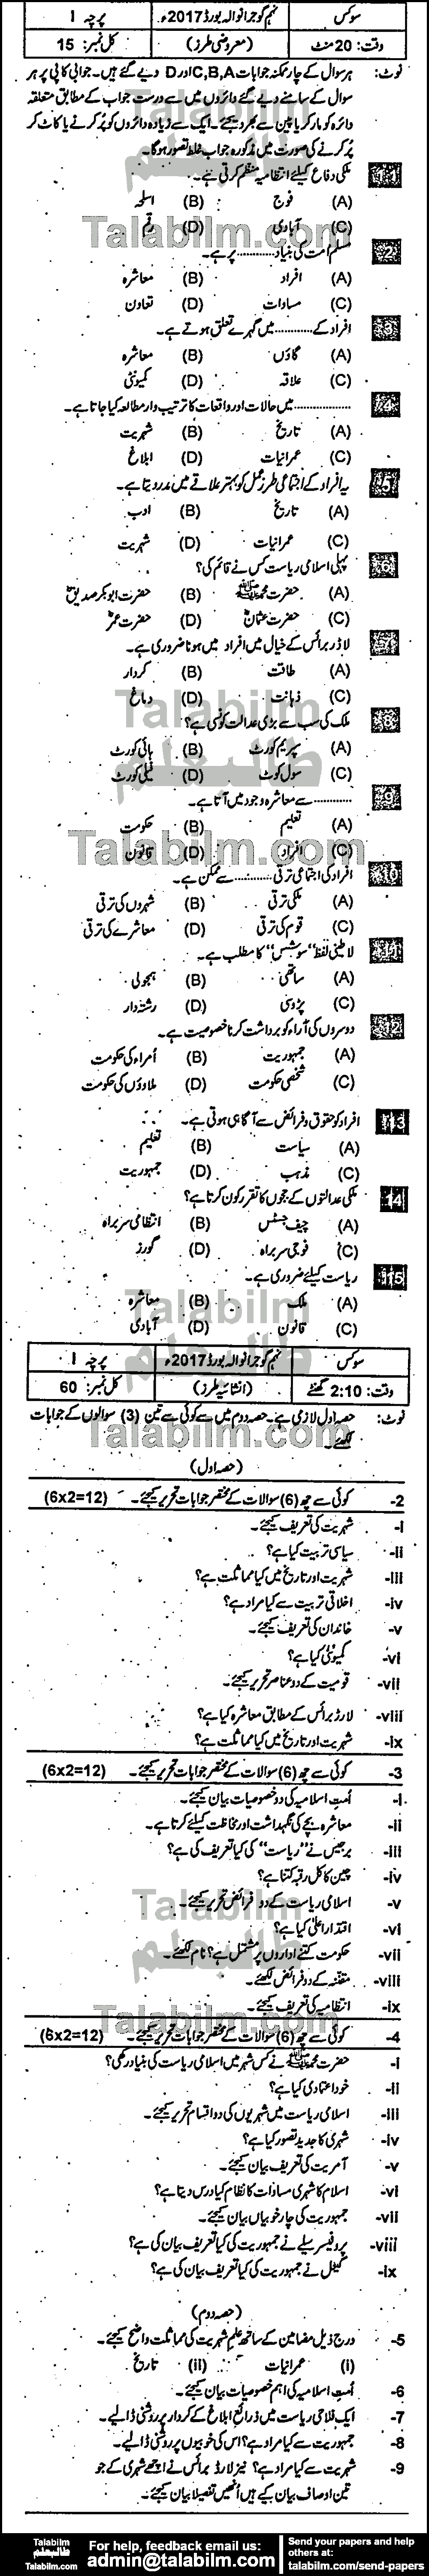 سوکس نہم گوجرانوالہ بورڈ 2017ء پرچہ I
وقت: 20 منٹ (معروضی طرز) کل نمبر: 15
نوٹ: ہر سوال کے چار ممکنہ جوابات C,B,A اور D دیے گئے ہیں۔ جوابی کاپی پر ہر
سوال کے سامنے دیے گئے دائروں میں سے درست جواب کے مطابق متعلقہ
دائرہ کو مارکر یا پین سے بھر دیجئے۔ ایک سے زیادہ دائروں کو پُر کرنے یا کاٹ کر
پُر کرنے کی صورت میں مذکورہ جواب غلط تصور ہوگا۔
ملکی دفاع کیلئے انتظامیہ منظم کرتی ہے۔
(A) فوج (B) اسلحہ
(C) آبادی (D) رقم
2- مسلم امت کی بنیاد ............ پر ہے۔
(A) افراد (B) معاشرہ
(C) مساوات (D) تعاون
3- افراد کے ............ میں گہرے تعلق ہوتے ہے۔
(A) گاؤں (B) معاشرہ
(C) علاقہ (D) کمیونٹی
4- ............ میں حالات اور واقعات کا ترتیب وار مطالعہ کیا جاتا ہے۔
(A) تاریخ (B) شہریت
(C) عمرانیات (D) ابلاغ
5- یہ افراد کے اجتماعی طرز عمل کو بہتر علاقے میں مدد دیتا ہے۔
(A) تاریخ (B) ادب
(C) عمرانیات (D) شہریت
6- پہلی اسلامی ریاست کس نے قائم کی؟
(A) حضرت محمد ﷺ (B) حضرت ابوبکر صدیقؓ
(C) حضرت عثمانؓ (D) حضرت عمرؓ
7- لارڈ برائس کے خیال میں افراد میں ہونا ضروری ہے۔
(A) طاقت (B) کردار
(C) ذہانت (D) دماغ
8- ملک کی سب سے بڑی عدالت کونسی ہے؟
(A) سپریم کورٹ (B) ہائی کورٹ
(C) سول کوٹ (D) فیملی کورٹ
9- ............ سے معاشرہ وجود میں آتا ہے۔
(A) تعلیم (B) حکومت
(C) افراد (D) قانون
10- افراد کی اجتماعی ترقی ............ سے ممکن ہے۔
(A) ملکی ترقی (B) شہروں کی ترقی
(C) قوم کی ترقی (D) معاشرے کی ترقی
11- لاطینی لفظ "سوشس" کا مطلب ہے۔
(A) ساتھی (B) ہمجولی
(C) پڑوسی (D) رشتہ دار
12- دوسروں کی آراء کو برداشت کرنا خصوصیت ہے۔
(A) جمہوریت (B) اُمراء کی حکومت
(C) شخصی حکومت (D) ملاوؤں کی حکومت
13- افراد کو حقوق و فرائض سے آگاہی ہوتی ہے۔
(A) سیاست (B) تعلیم
(C) مذہب (D) جمہوریت
14- ملکی عدالتوں کے ججوں کا تقرر کون کرتا ہے؟
(A) چیف جسٹس (B) انتظامی سربراہ
(C) فوجی سربراہ (D) گورنر
15- ریاست کیلئے ضروری ہے۔
(A) ملک (B) معاشرہ
(C) قانون (D) آبادی
سوکس نہم گوجرانوالہ بورڈ 2017ء پرچہ I
وقت: 2:10 گھنٹے (انشائیہ طرز) کل نمبر: 60
نوٹ: حصہ اول لازمی ہے۔ حصہ دوم میں سے کوئی سے تین (3) سوالوں کے جوابات
لکھئے۔
(حصہ اول)
2- کوئی سے چھ (6) سوالات کے مختصر جوابات تحریر کیجئے۔ (6x2=12)
i- شہریت کی تعریف کیجئے۔
ii- سیاسی تربیت کیا ہے؟
iii- شہریت اور تاریخ میں کیا مماثلت ہے؟
iv- اخلاقی تربیت سے کیا مراد ہے؟
v- خاندان کی تعریف کیجئے۔
vi- کمیونٹی کیا ہے؟
vii- قومیت کے دو عناصر تحریر کیجئے۔
viii- لارڈ برائس کے مطابق معاشرہ کیا ہے؟
ix- شہریت اور تاریخ میں کیا مماثلت ہے؟
3- کوئی سے چھ (6) سوالات کے مختصر جوابات تحریر کیجئے۔ (6x2=12)
i- اُمتِ اسلامیہ کی دو خصوصیات بیان کیجئے۔
ii- معاشرہ بچے کی نگہداشت اور حفاظت کیلئے کرتا ہے۔
iii- برجیس نے "ریاست" کی کیا تعریف کی ہے؟
iv- چین کا کل رقبہ کتنا ہے؟
v- اسلامی ریاست کے دو فرائض تحریر کیجئے۔
vi- اقتدار اعلیٰ کیا ہے؟
vii- حکومت کتنے اداروں پر مشتمل ہے؟ نام لکھئے۔
viii- مقننہ کے دو فرائض لکھئے۔
ix- انتظامیہ کی تعریف کیجئے۔
4- کوئی سے چھ (6) سوالات کے مختصر جوابات تحریر کیجئے۔ (6x2=12)
i- حضرت محمد ﷺ نے کس شہر میں اسلامی ریاست کی بنیاد رکھی؟
ii- خود اعتمادی کیا ہے؟
iii- اسلامی ریاست میں شہریوں کی دو اقسام تحریر کیجئے۔
iv- شہری کا جدید تصور کیا ہے؟
v- آمریت کی تعریف بیان کیجئے۔
vi- اسلام کا شہری مساوات کا نظام کیا درس دیتا ہے؟
vii- جمہوریت کی چار خوبیاں بیان کیجئے۔
viii- پروفیسر سیلے نے جمہوریت کی کیا تعریف بیان کی ہے؟
ix- گیٹل نے جمہوریت کی کیا تعریف بیان کی ہے؟
(حصہ دوم)
5- درج ذیل مضامین کے ساتھ علم شہریت کی مماثلت واضح کیجئے۔
(i) عمرانیات (ii) تاریخ
6- اُمتِ اسلامیہ کی اہم خصوصیات بیان کیجئے۔
7- ایک فلاحی ریاست میں ذرائع ابلاغ کے کردار پر روشنی ڈالیے۔
8- جمہوریت سے کیا مراد ہے؟ اس کی خوبیوں پر روشنی ڈالیے۔
9- شہریت سے کیا مراد ہے؟ نیز لارڈ برائس نے اچھے شہری کے جو
تین اوصاف بیان کیے ہیں اُنھیں تفصیلاً بیان کیجئے۔
Talabilm
طالبعلم
Talabilm.com
For help, feedback email us:
admin@talabilm.com
Send your papers and help
others at:
talabilm.com/send-papers